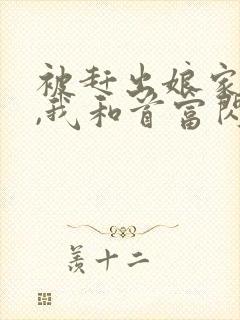 被赶出娘家
,我和首富闪
羡十二